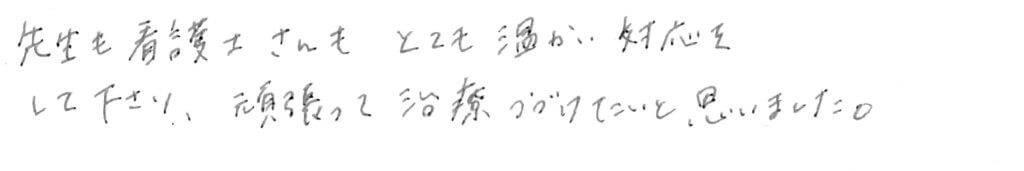 先生も看護士さんも とても温かい対応を
して下さり、頑張って治療つづけたいと思いました。